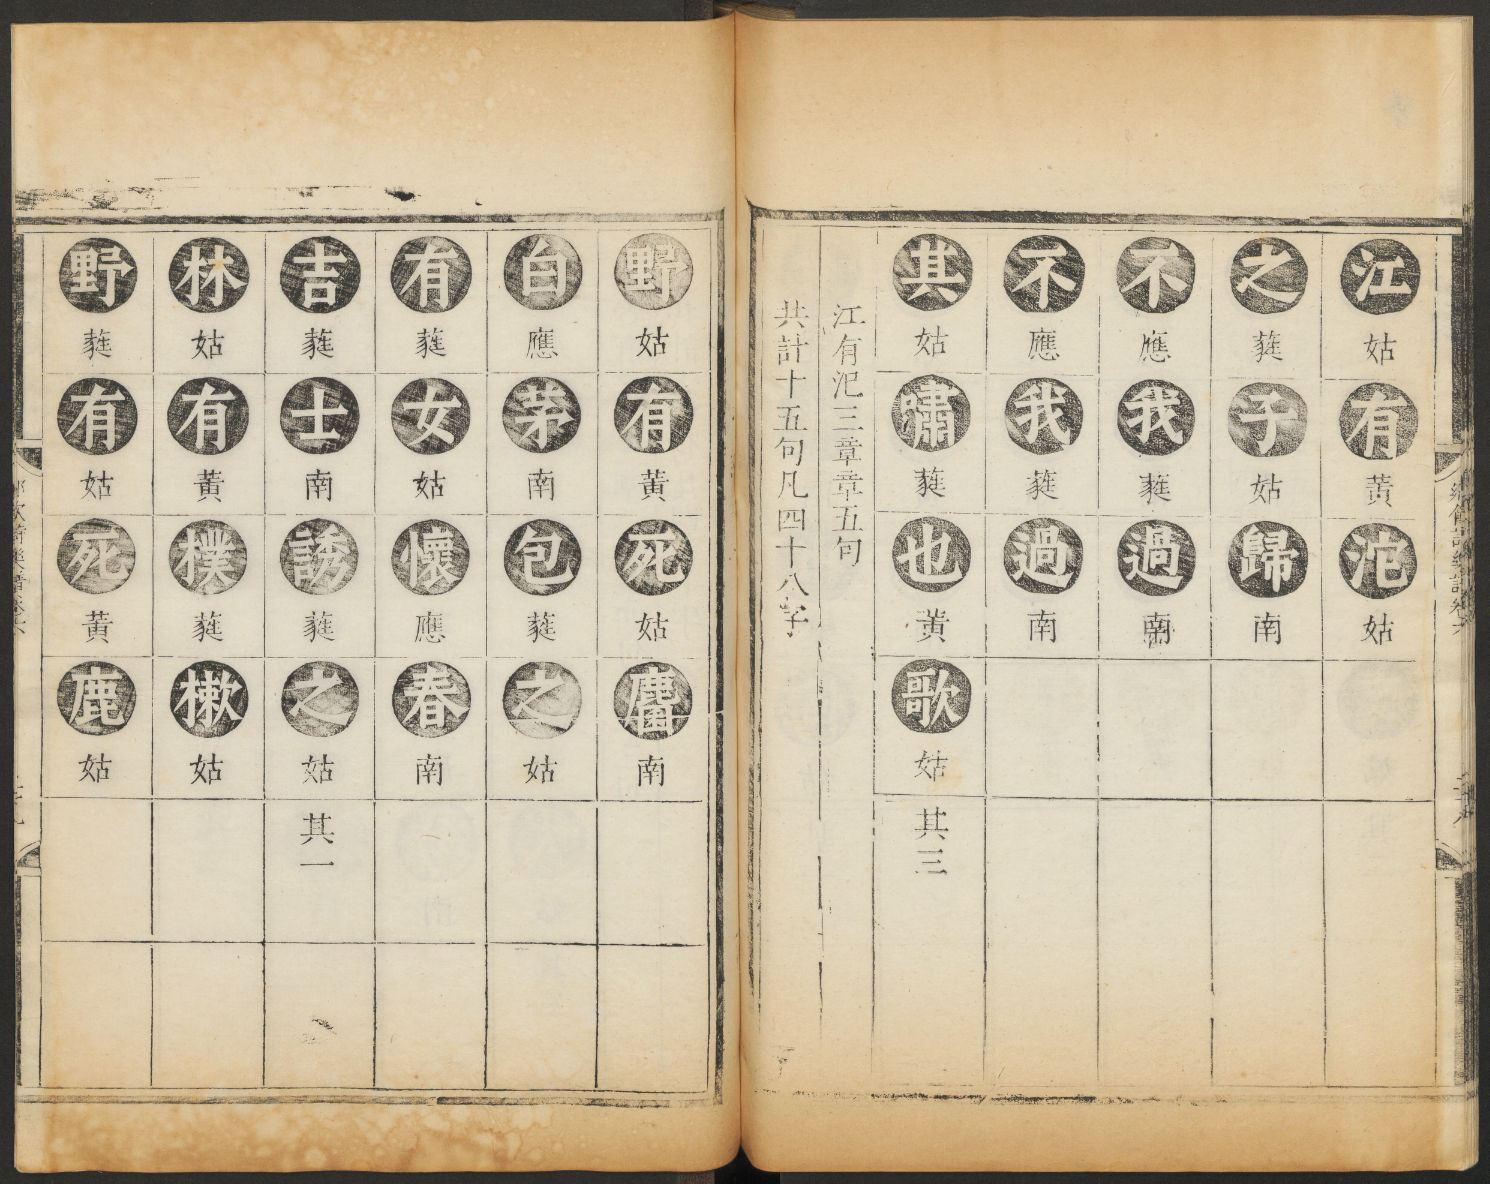 江姑有黃沱姑
之蕤子姑歸南
不應我蕤過南
不應我蕤過南
其姑嘯蕤也黃歌姑其三
江有汜三章章五句
共計十五句凡四十八字
野姑有黃死姑麕南
白應茅南包蕤之姑
有蕤女姑懷應春南
吉蕤士南誘蕤之姑其一
林姑有黃樸蕤樕姑
野蕤有姑死黃鹿姑